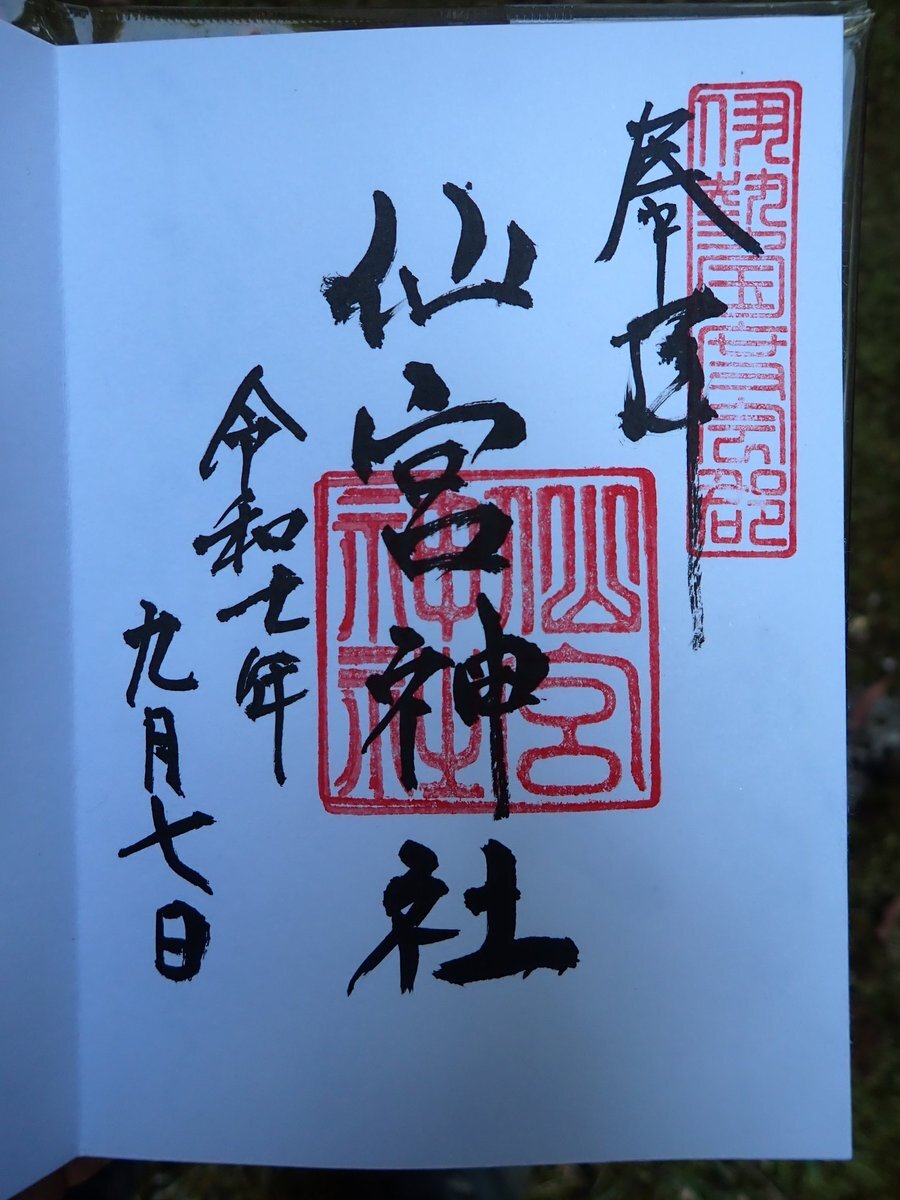 伊勢国度会郡
奉拝
仙宮神社
仙宮
神社
令和七年
九月七日